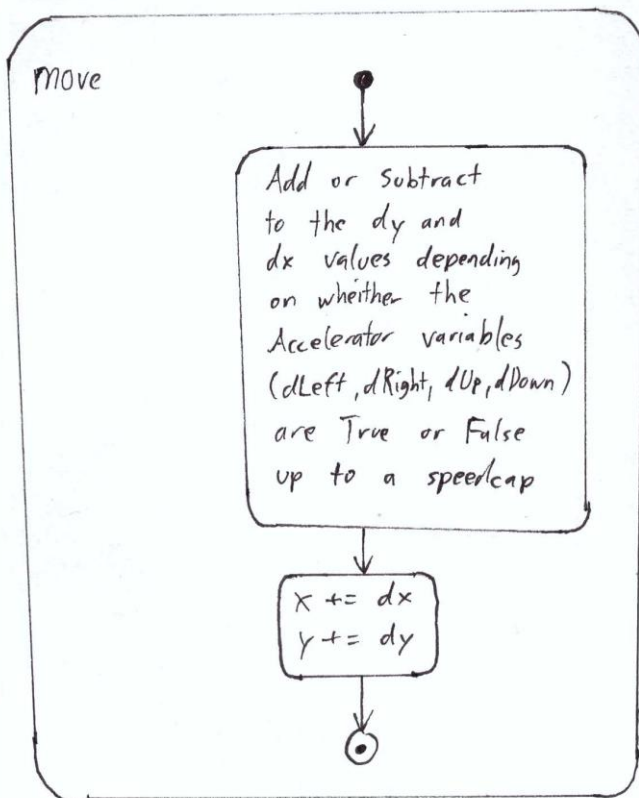 move
Add or Subtract
to the dy and
dx values depending
on wheither the
Accelerator variables
(dLeft, dRight, dUp, dDown)
are True or False
up to a speedcap
x += dx
y += dy